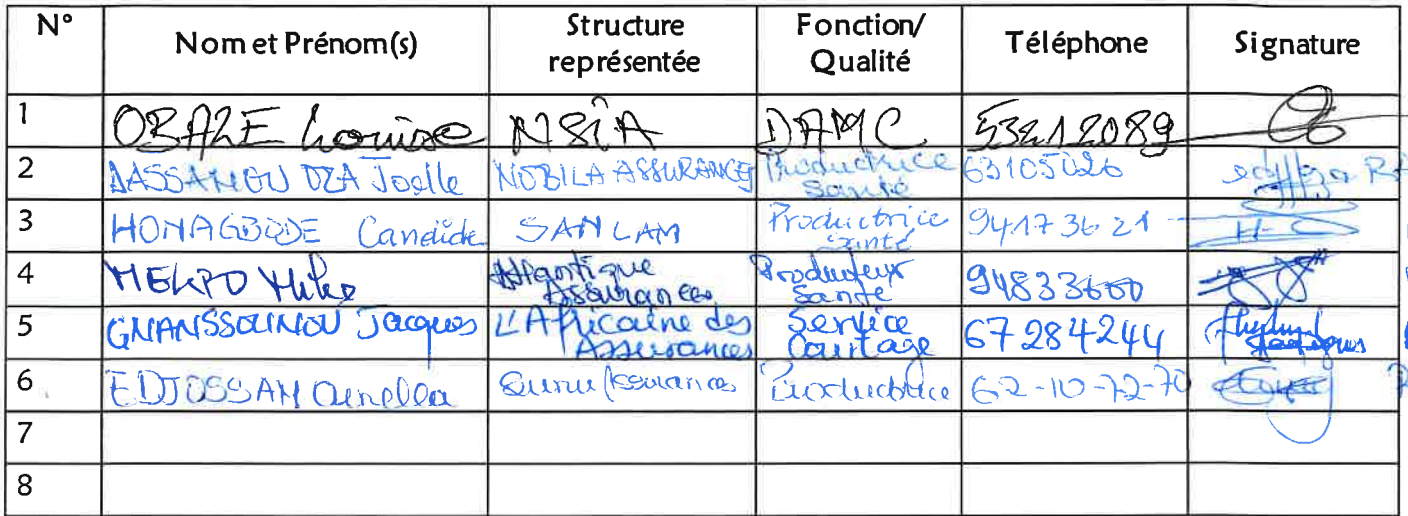 N° Nom et Prénom(s) Structure représentée Fonction/ Qualité Téléphone Signature
1 OBALE Louise NSIA DAMC 53212089
2 Joelle NOBILA ASSURANCES Productrice Santé 63105026
3 HONAGBODE Candide SANLAM Productrice santé 94173621
4 MEKPO Mike Atlantique Assurances Producteur Santé 94833600
5 GNANSSOUNOU Jacques L'Africaine des Assurances Service Courtage 67284244
6 EDJOSSAH Ornella Sunu Assurances Productrice 62-10-72-70
7
8